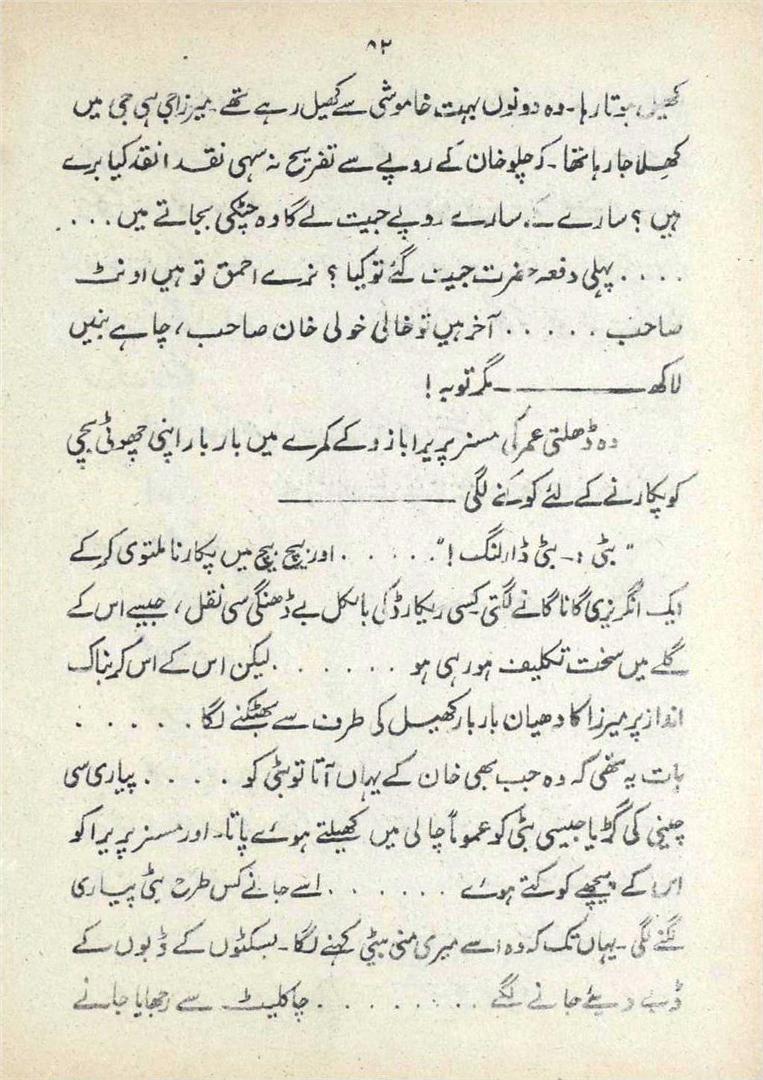 ۸۲
کھیل ہوتا رہا۔ وہ دونوں بہت خاموشی سے کھیل رہے تھے۔ میرزا جی ہی جی میں
کھلا جا رہا تھا۔ کہ چلو خان کے روپے سے تفریح نہ سہی نقد انقد کیا برے
ہیں ؟ سارے کے سارے روپے جیت لے گا وہ چٹکی بجاتے میں . . . .
. . . . پہلی دفعہ حضرت جیت گئے تو کیا ؟ نرے احمق تو ہیں اونٹ
صاحب . . . . . آخر ہیں تو خالی خولی خان صاحب ، چاہے بنیں
لاکھ ـــــــــــ مگر توبہ !
وہ ڈھلتی عمر کی مسز پریرا بازو کے کمرے میں بار بار اپنی چھوٹی بچی
کو پکارنے کے لئے کوکنے لگی ـــــــــــ
" بٹی :۔ بٹی ڈارلنگ ! " . . . . . اور بیچ بیچ میں پکارنا ملتوی کر کے
ایک انگریزی گانا گانے لگتی کسی ریکارڈ کی بالکل بے ڈھنگی سی نقل ، جیسے اس کے
گلے میں سخت تکلیف ہو رہی ہو . . . . . . . لیکن اس کے اس کربناک
انداز پر میرزا کا دھیان بار بار کھیل کی طرف سے بھٹکنے لگا . . . . .
بات یہ تھی کہ وہ جب بھی خان کے یہاں آتا تو بٹی کو . . . . پیاری سی
چینی کی گڑیا جیسی بٹی کو عموماً چالی میں کھیلتے ہوئے پاتا۔ اور مسز پریرا کو
اس کے پیچھے کوکتے ہوئے . . . . . . . اسے جانے کس طرح بٹی پیاری
لگنے لگی ۔ یہاں تک کہ وہ اسے میری منی بیٹی کہنے لگا ۔ بسکٹوں کے ڈبوں کے
ڈبے دیئے جانے لگے . . . . . . . . . چاکلیٹ سے رجھایا جانے